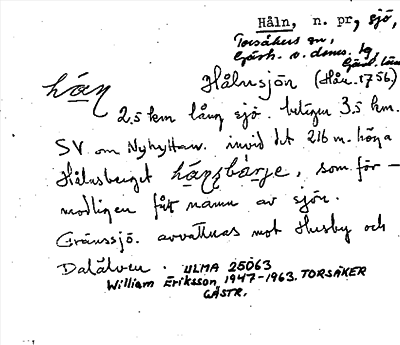 Håln, n. pr, sjö,
Torsåkers sn,
Gävleb. län
hån Hålnsjön (Hår. 1756)
2,5 km lång sjö. belägen 3,5 km.
SV om Nyhyttan. invid det 216 m. höga
Hålnsberget hånsbärje, som för-
modligen fått namn av sjön.
Gränssjö. avvattnas mot Husby och
Dalälven. ULMA 25063
William Eriksson 1947-1963. TORSÅKER
GÄSTR.